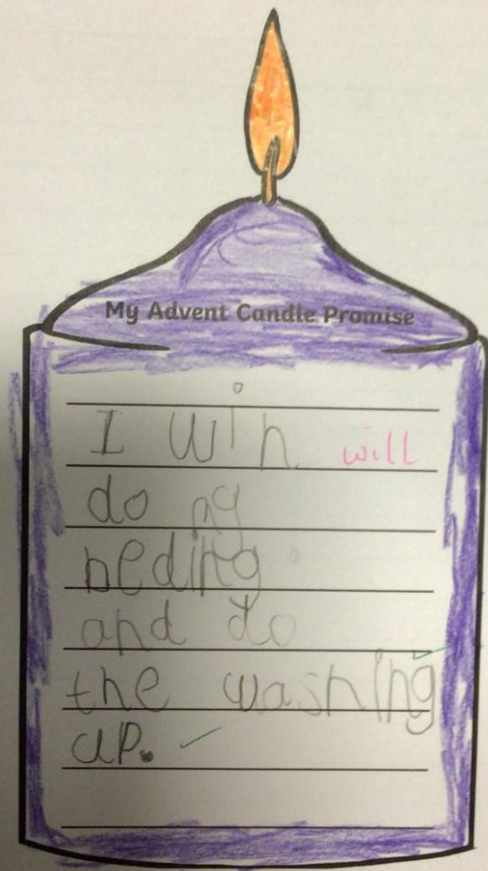 My Advent Candle Promise
I win will
do ng
beding
and do
the washing
up.